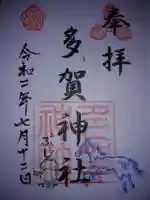 奉拝
多賀神社
令和二年七月十三日